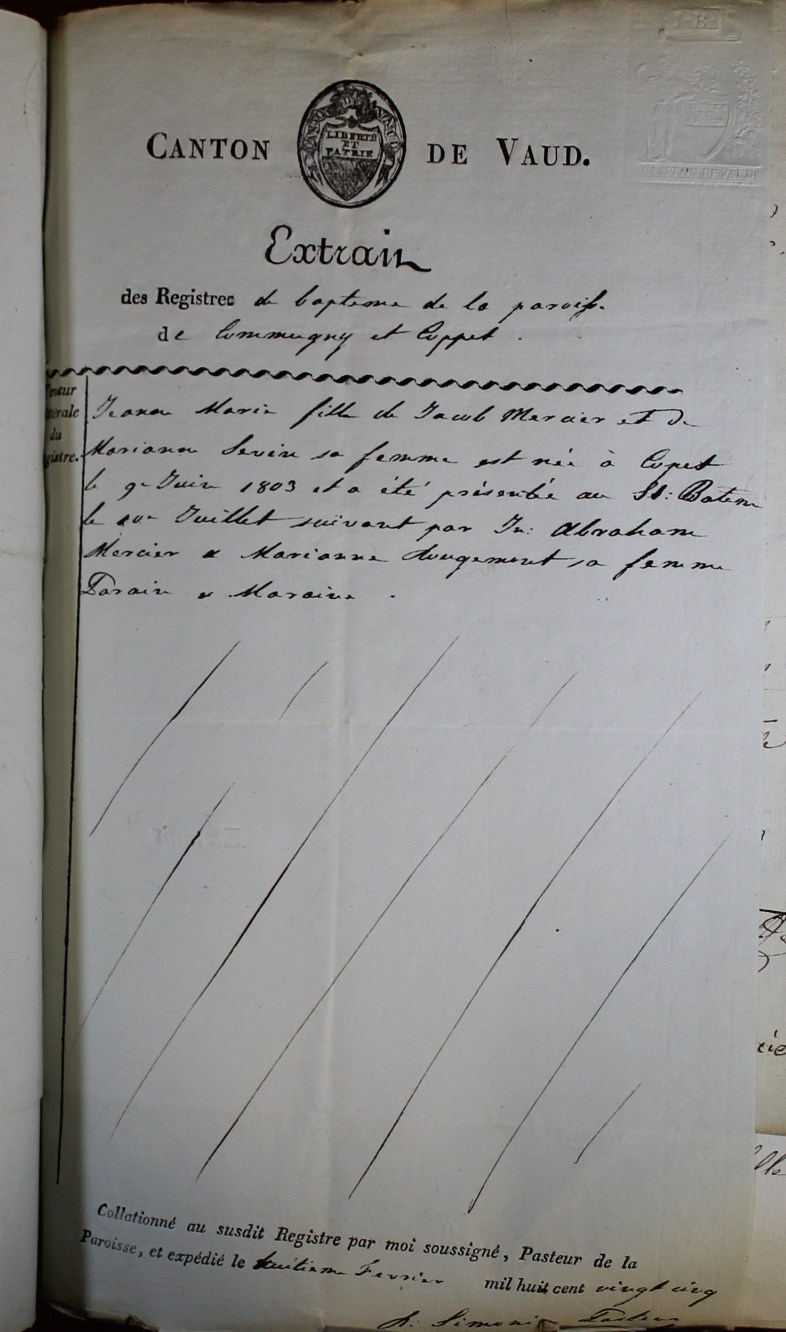 CANTON DE VAUD.
CANTON DE VAUD
LIBERTÉ
ET
PATRIE
CANTON DE VAUD
Extrait
des Registres de bapteme de la paroisse
de Commugny et Coppet.
du
Jeanne Marie fille de Jacob Mercier et de
Marianne sa femme est née à Copet
le 9e Juin 1803 et a été présentée au St: Bateme
le Juillet suivant par Jn: Abraham
Mercier & Marianne sa femme
Parain & Maraine.
Collationné au susdit Registre par moi soussigné, Pasteur de la
Paroisse, et expédié le huitieme Fevrier mil huit cent vingt cinq
Pasteur